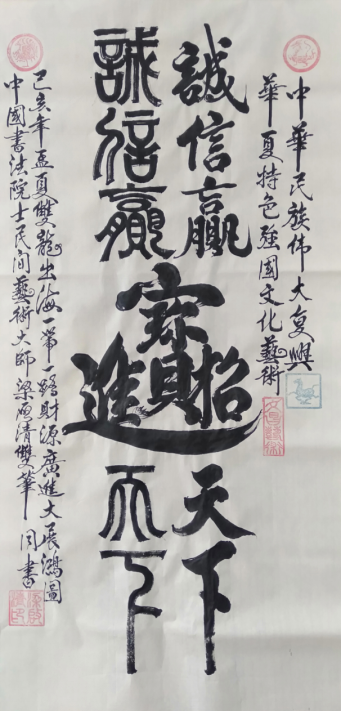 中華民族伟大复興
華夏特色强國文化藝術
誠信贏
天下
招財進寶
誠信贏
天下
己亥年孟夏雙龍出海一帶一路財源廣進大展鴻圖
中國書法院士民间藝術大師梁清雙筆同書